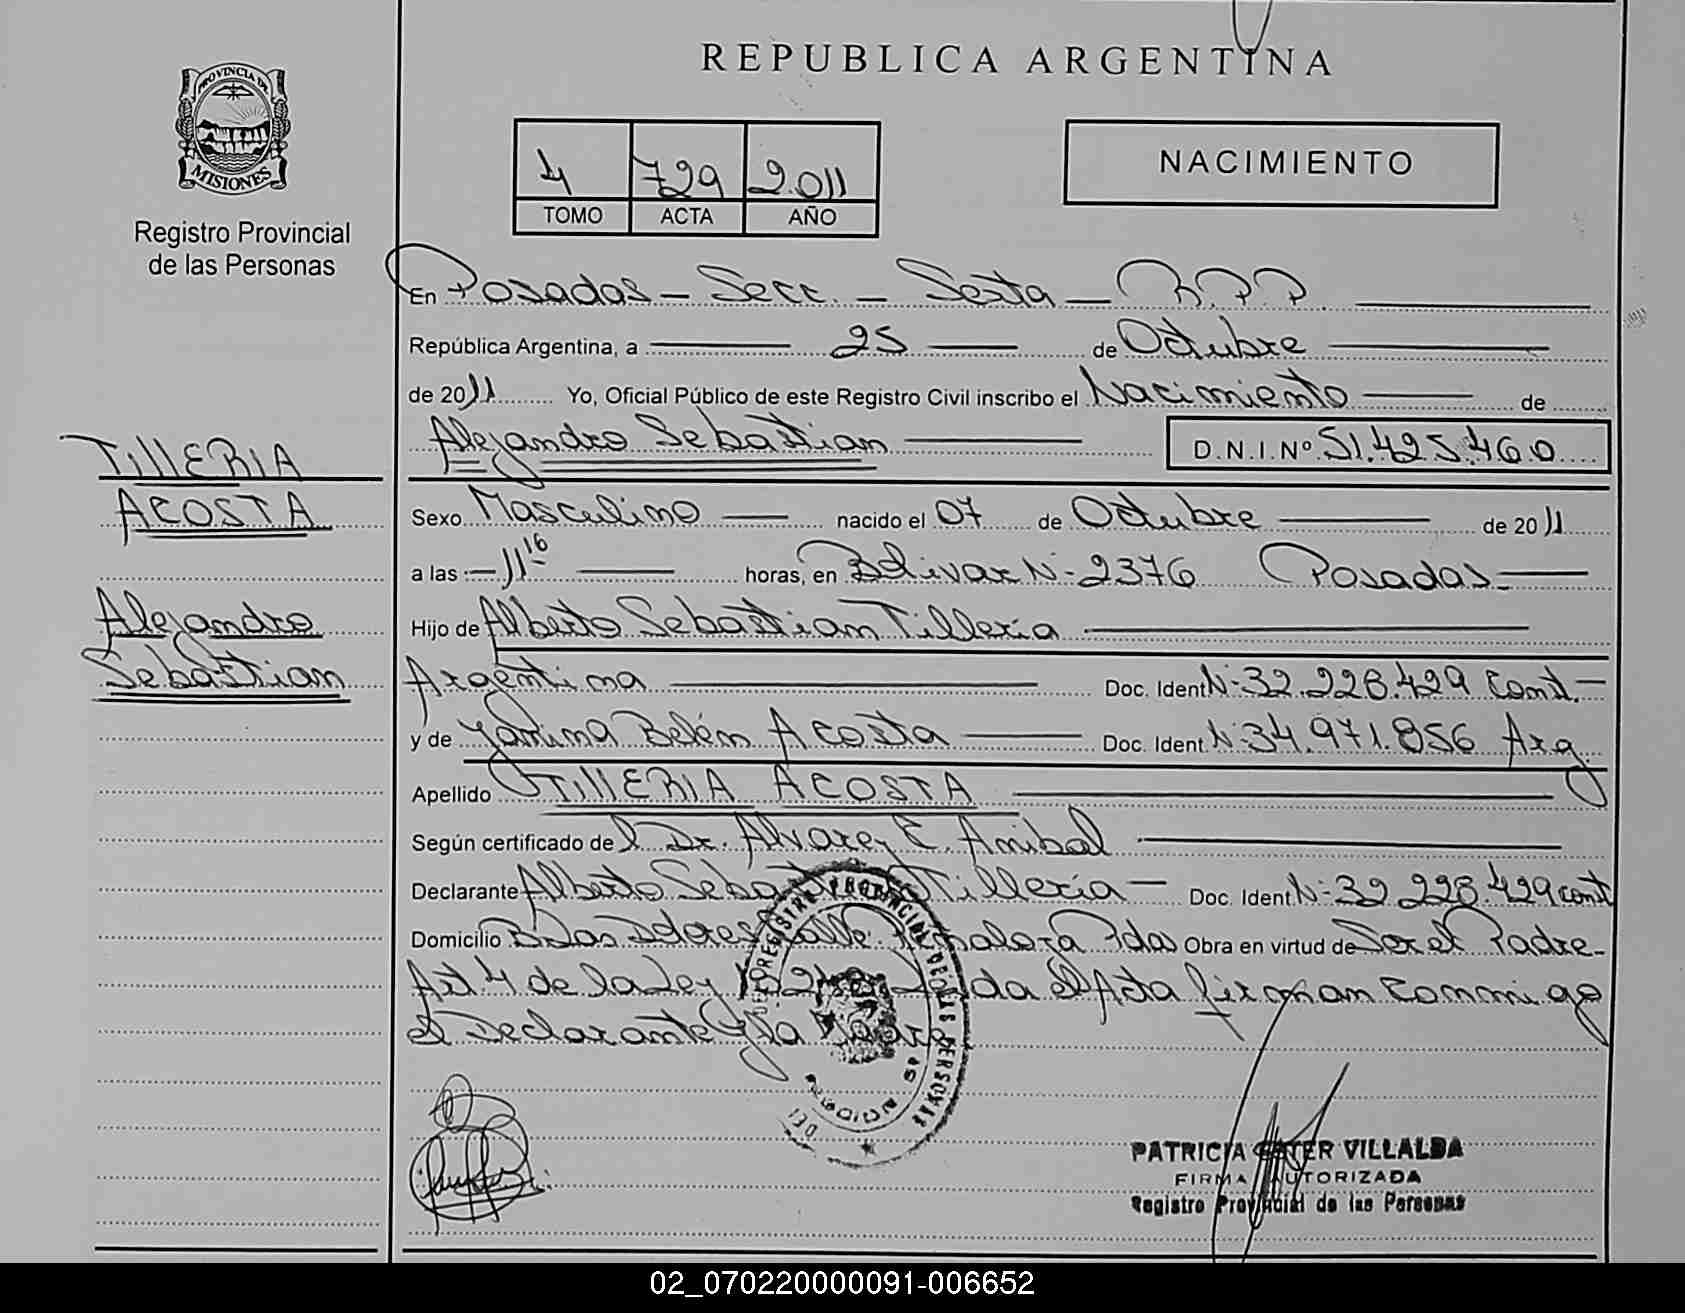 REPUBLICA ARGENTINA
PROVINCIA DE
MISIONES
Registro Provincial
de las Personas
4 729 2.011
TOMO ACTA AÑO
NACIMIENTO
En Posadas - Secc. - Sexta - R.P.P.
República Argentina, a 25 de Octubre
de 2011 Yo, Oficial Público de este Registro Civil inscribo el Nacimiento de
Alejandro Sebastian D.N.I.Nº 51.425.460
TILLERIA
ACOSTA
Alejandro
Sebastian
Sexo Masculino nacido el 07 de Octubre de 2011
a las 11 16 horas, en Bolivar N- 2376 Posadas
Hijo de Alberto Sebastian Tilleria
Argentina Doc. Ident N- 32.228.429 Cont.
y de Belén Acosta Doc. Ident. N- 34.971.856 Arg
Apellido TILLERIA ACOSTA
Según certificado del Dr. Alvarez E. Anibal
Declarante Alberto Sebastian Tillería Doc. Ident. N- 32.228.429 cont
Domicilio Pdas Obra en virtud de Ser el Padre
Art 4 de la Ley el Acta firman Conmigo
el Declarante y la Madre
REGISTRO PROVINCIAL DE LAS PERSONAS
PATRICIA VILLALBA
FIRMA AUTORIZADA
Registro Provincial de las Personas
02_070220000091-006652